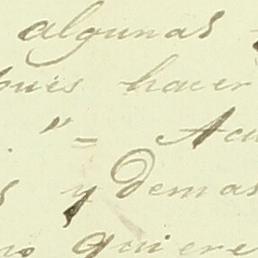 algunas
pues hacer
. " = Acu
s y demas
no quiere